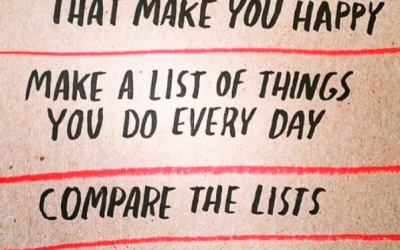 THAT MAKE YOU HAPPY
MAKE A LIST OF THINGS
YOU DO EVERY DAY
COMPARE THE LISTS